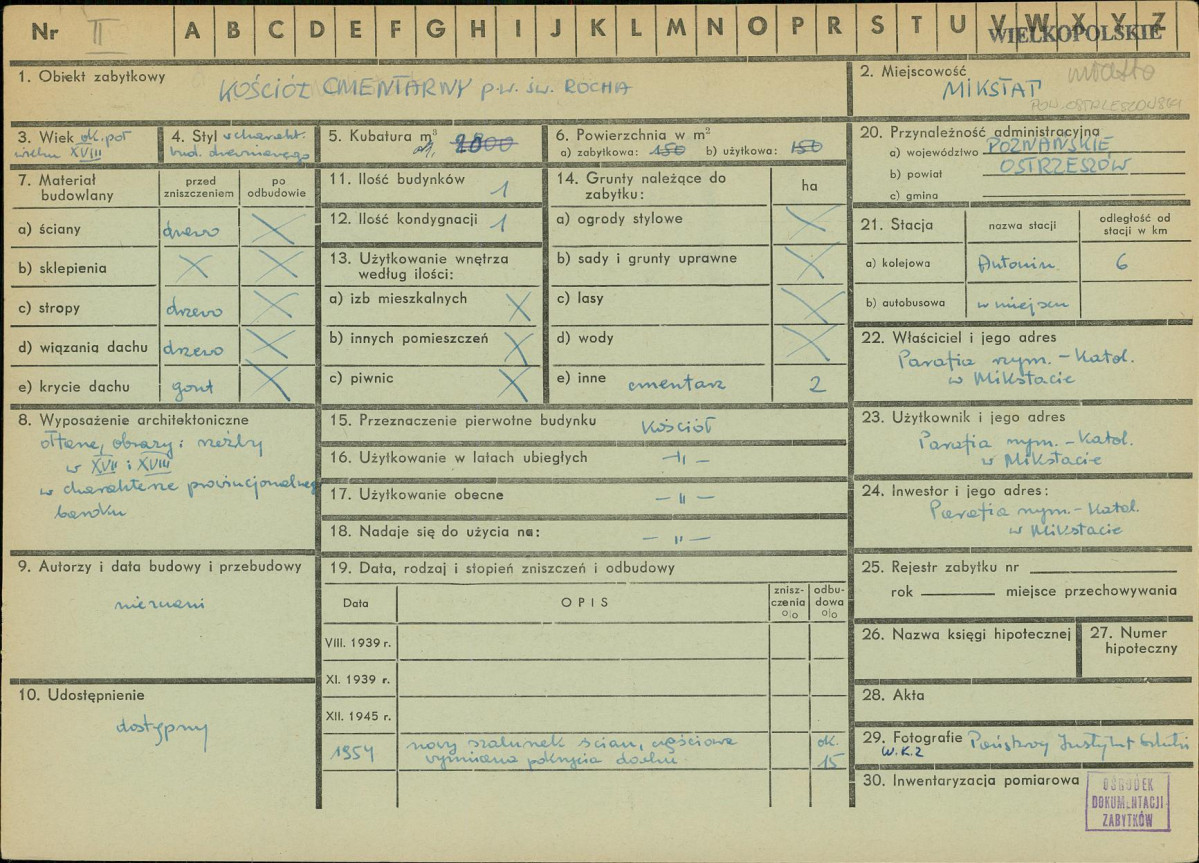 Nr II A B C D E F G H I J K L M N O P R S T U V W X Y Z
WIELKOPOLSKIE
1. Obiekt zabytkowy
KOŚCIÓŁ CMENTARNY p.w. św. ROCHA
2. Miejscowość miasto
MIKSTAT
POW. OSTRZESZOWSKI
3. Wiek ok. poł
wieku XVIII
4. Styl o charakt.
bud. drewnianego
5. Kubatura m³
6. Powierzchnia w m²
a) zabytkowa: 150 b) użytkowa: 150
7. Materiał budowlany
przed zniszczeniem
po odbudowie
a) ściany drewo
b) sklepienia
c) stropy drzewo
d) wiązania dachu drzewo
e) krycie dachu gont
8. Wyposażenie architektoniczne
ołtarze, obrazy i rzeźby
w XVII i XVIII
w charakterze prowincjonalnego
baroku
9. Autorzy i data budowy i przebudowy
nieznani
10. Udostępnienie
dostępny
11. Ilość budynków 1
12. Ilość kondygnacji 1
13. Użytkowanie wnętrza
według ilości:
a) izb mieszkalnych X
b) innych pomieszczeń X
c) piwnic X
14. Grunty należące do
zabytku:
ha
a) ogrody stylowe
b) sady i grunty uprawne
c) lasy
d) wody
e) inne cmentarz 2
15. Przeznaczenie pierwotne budynku kościół
16. Użytkowanie w latach ubiegłych -"-
17. Użytkowanie obecne -"-
18. Nadaje się do użycia na: -"-
19. Data, rodzaj i stopień zniszczeń i odbudowy
Data
OPIS
znisz-
czenia
%
odbu-
dowa
%
VIII. 1939 r.
XI. 1939 r.
XII. 1945 r.
1954 nowy szalunek ścian, częściowa ok.
wymiana pokrycia dachu 15
20. Przynależność administracyjna
a) województwo POZNAŃSKIE
b) powiat OSTRZESZÓW
c) gmina
21. Stacja
nazwa stacji
odległość od
stacji w km
a) kolejowa Antonin 6
b) autobusowa w miejscu
22. Właściciel i jego adres
Parafia rzym.-Katol.
w Mikstacie
23. Użytkownik i jego adres
Parafia rzym.-Katol.
w Mikstacie
24. Inwestor i jego adres:
Parafia rzym.-Katol.
w Mikstacie
25. Rejestr zabytku nr
rok miejsce przechowywania
26. Nazwa księgi hipotecznej
27. Numer
hipoteczny
28. Akta
29. Fotografie Państwowy Instytut Sztuki
W.K.Z
30. Inwentaryzacja pomiarowa
OŚRODEK
DOKUMENTACJI
ZABYTKÓW